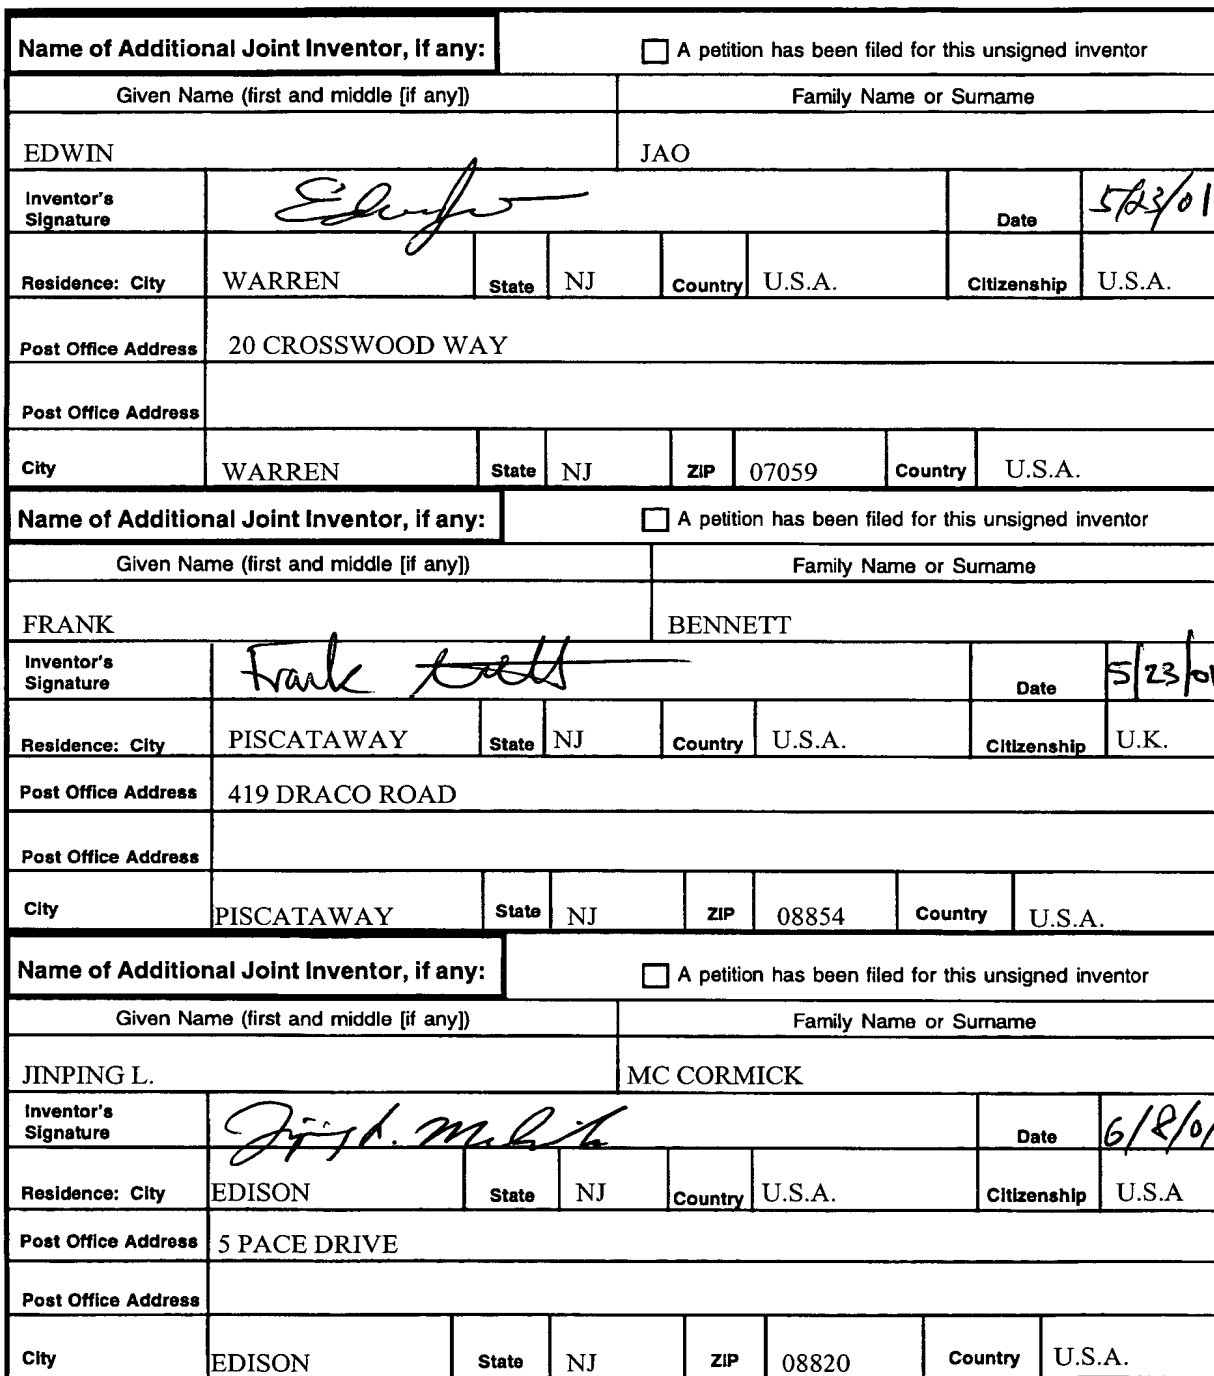 Name of Additional Joint Inventor, if any: A petition has been filed for this unsigned inventor
Given Name (first and middle [if any]) Family Name or Surname
EDWIN JAO
Inventor's Signature Edwin Jao Date 5/23/01
Residence: City WARREN State NJ Country U.S.A. Citizenship U.S.A.
Post Office Address 20 CROSSWOOD WAY
Post Office Address
City WARREN State NJ ZIP 07059 Country U.S.A.
Name of Additional Joint Inventor, if any: A petition has been filed for this unsigned inventor
Given Name (first and middle [if any]) Family Name or Surname
FRANK BENNETT
Inventor's Signature Frank Bennett Date 5/23/01
Residence: City PISCATAWAY State NJ Country U.S.A. Citizenship U.K.
Post Office Address 419 DRACO ROAD
Post Office Address
City PISCATAWAY State NJ ZIP 08854 Country U.S.A.
Name of Additional Joint Inventor, if any: A petition has been filed for this unsigned inventor
Given Name (first and middle [if any]) Family Name or Surname
JINPING L. MC CORMICK
Inventor's Signature Jinping L. McCormick Date 6/8/01
Residence: City EDISON State NJ Country U.S.A. Citizenship U.S.A
Post Office Address 5 PACE DRIVE
Post Office Address
City EDISON State NJ ZIP 08820 Country U.S.A.